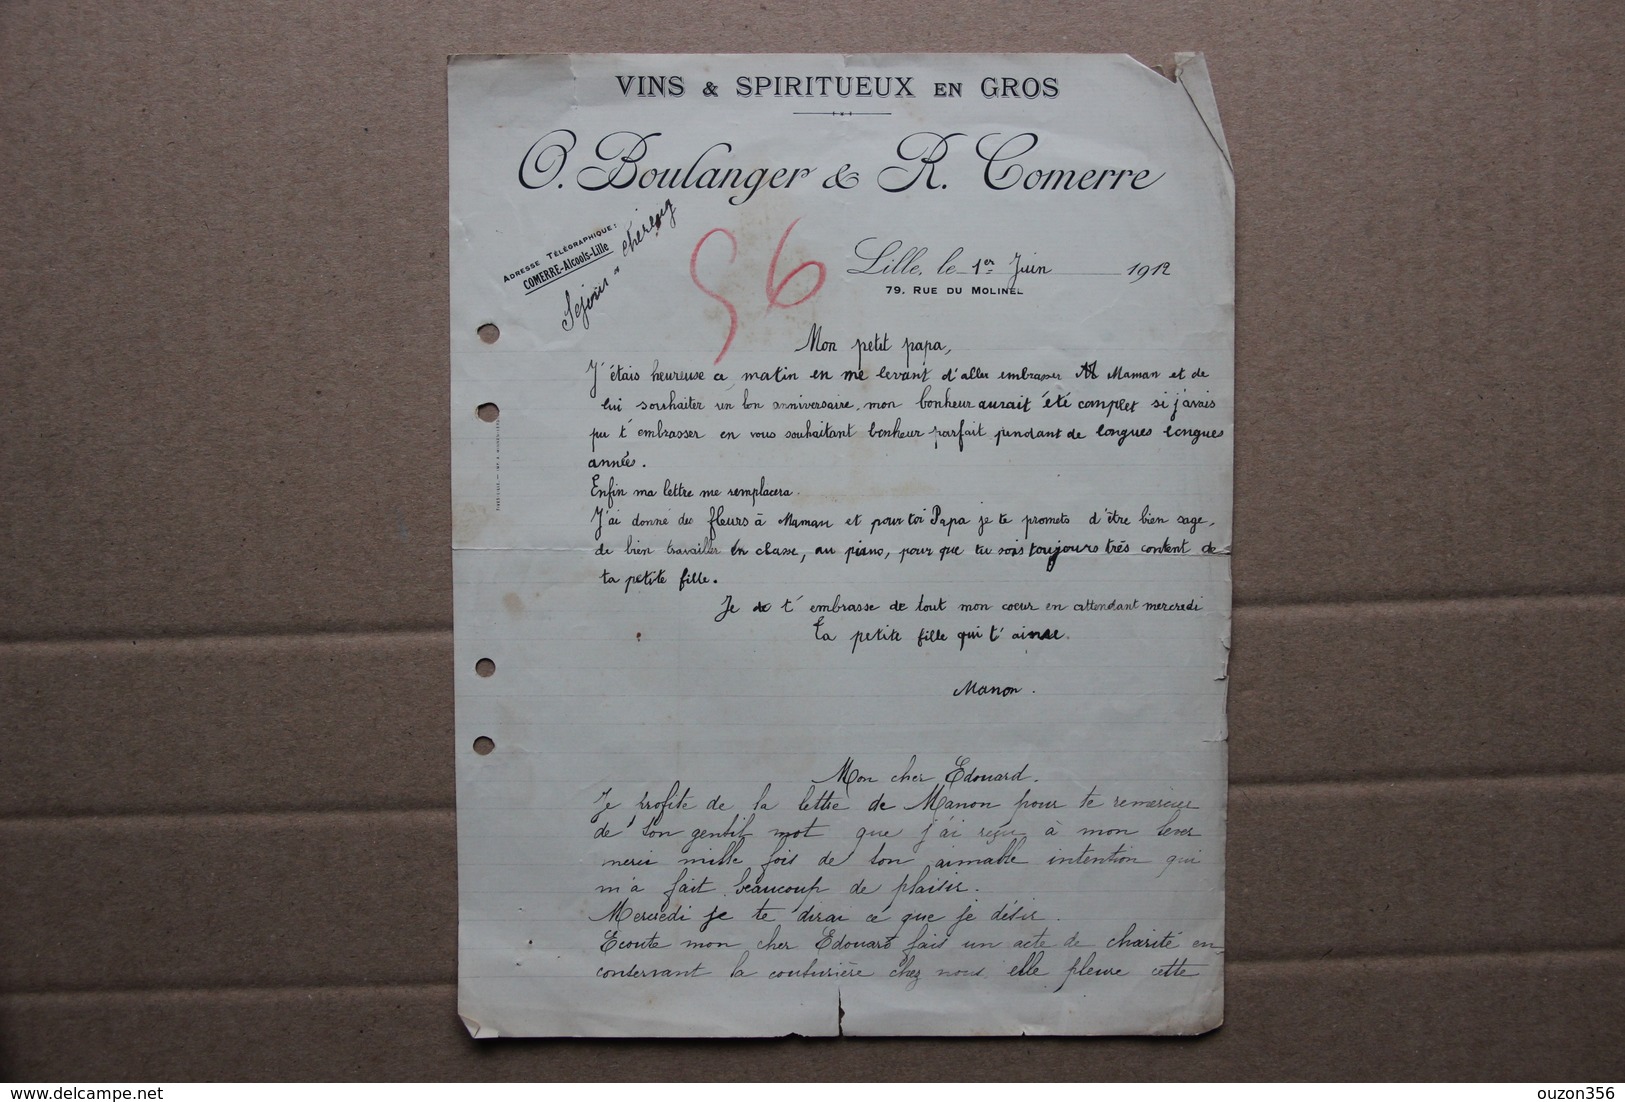 VINS & SPIRITUEUX EN GROS
O. Boulanger & R. Comerre
ADRESSE TÉLÉGRAPHIQUE:
COMERRE-Alcools-Lille
Séjour - Chereng
96
Lille, le 1er Juin 1912
79, RUE DU MOLINEL
Mon petit papa,
J'étais heureuse ce matin en me levant d'aller embrasser Maman et de
lui souhaiter un bon anniversaire, mon bonheur aurait été complet si j'avais
pu t'embrasser en vous souhaitant bonheur parfait pendant de longues longues
années.
Enfin ma lettre me remplacera.
J'ai donné des fleurs à Maman et pour toi Papa je te promets d'être bien sage,
de bien travailler en classe, au piano, pour que tu sois toujours très content de
ta petite fille.
Je t'embrasse de tout mon coeur en attendant mercredi
Ta petite fille qui t'aime.
Manon.
Mon cher Edouard.
Je profite de la lettre de Manon pour te remercier
de ton gentil mot que j'ai reçu à mon lever
merci mille fois de ton aimable intention qui
m'a fait beaucoup de plaisir.
Mercredi je te dirai ce que je désir.
Ecoute mon cher Edouard fais un acte de charité en
conservant la couturière chez nous, elle pleure cette
delcampe.net
ouzon356